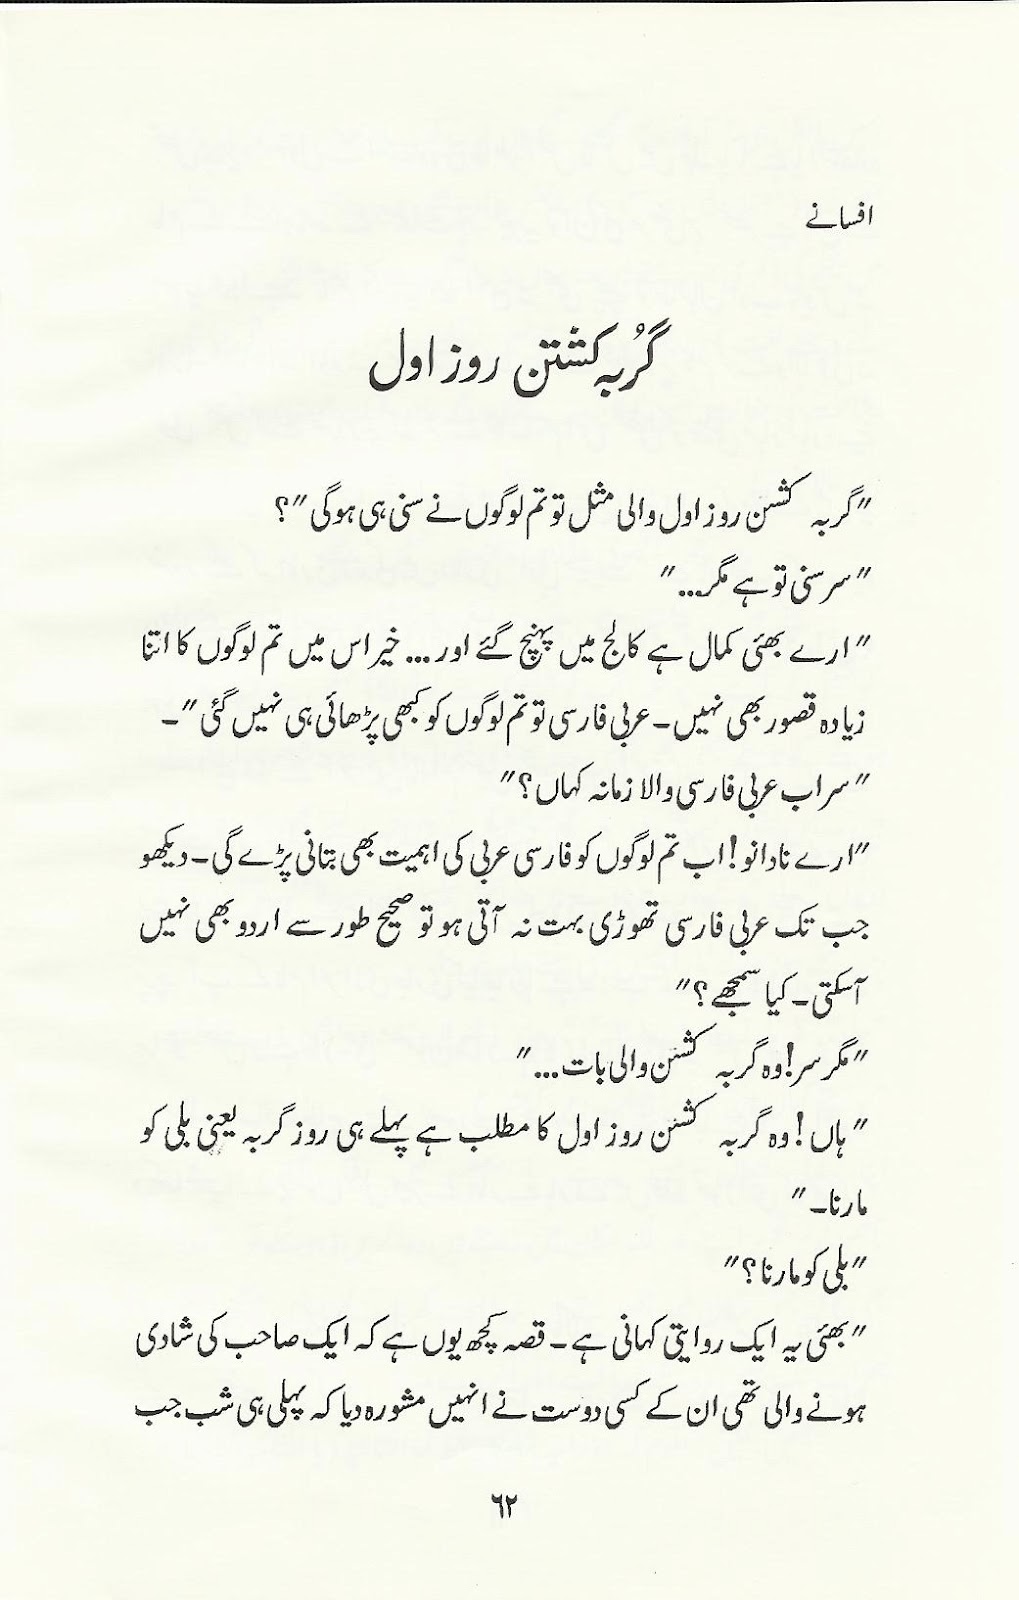 افسانے
گُربہ کشتن روز اول
"گربہ کشتن روز اول والی مثل تو تم لوگوں نے سنی ہی ہوگی"؟
"سر سنی تو ہے مگر..."
"ارے بھئی کمال ہے کالج میں پہنچ گئے اور... خیر اس میں تم لوگوں کا اتنا
زیادہ قصور بھی نہیں۔ عربی فارسی تو تم لوگوں کو کبھی پڑھائی ہی نہیں گئی"۔
"سر اب عربی فارسی والا زمانہ کہاں؟"
"ارے نادانو! اب تم لوگوں کو فارسی عربی کی اہمیت بھی بتانی پڑے گی۔ دیکھو
جب تک عربی فارسی تھوڑی بہت نہ آتی ہو تو صحیح طور سے اردو بھی نہیں
آسکتی۔ کیا سمجھے؟"
"مگر سر! وہ گربہ کشتن والی بات..."
"ہاں! وہ گربہ کشتن روز اول کا مطلب ہے پہلے ہی روز گربہ یعنی بلی کو
مارنا۔"
"بلی کو مارنا؟"
"بھئی یہ ایک روایتی کہانی ہے۔ قصہ کچھ یوں ہے کہ ایک صاحب کی شادی
ہونے والی تھی ان کے کسی دوست نے انہیں مشورہ دیا کہ پہلی ہی شب جب
٦٢